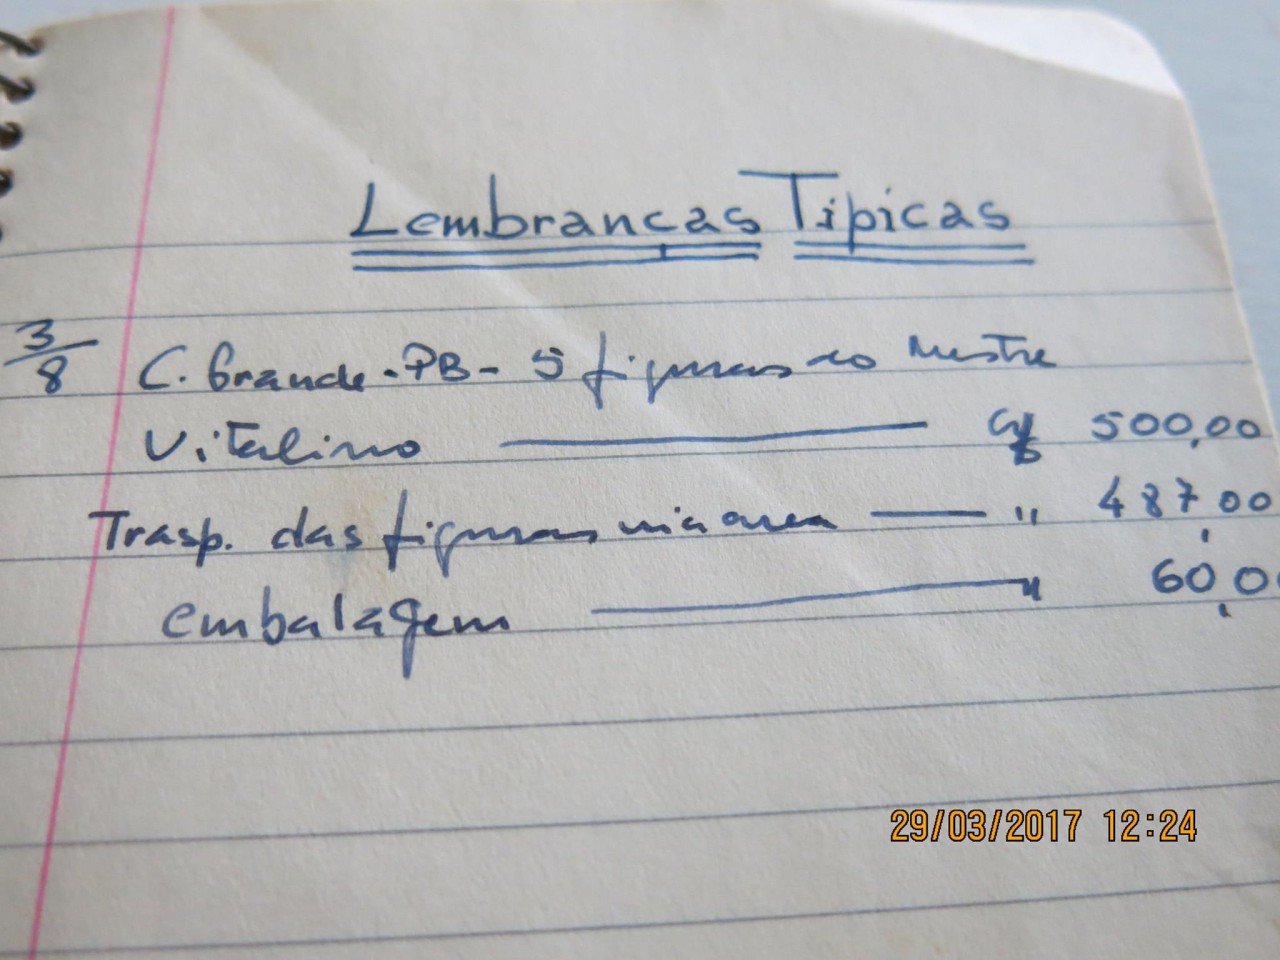 Lembranças Tipicas
3/8 C. Grande - PB - 5 figuras do Mestre
Vitalino Cr$ 500,00
Trasp. das figuras via aerea " 487,00
embalagem " 60,0
29/03/2017 12:24